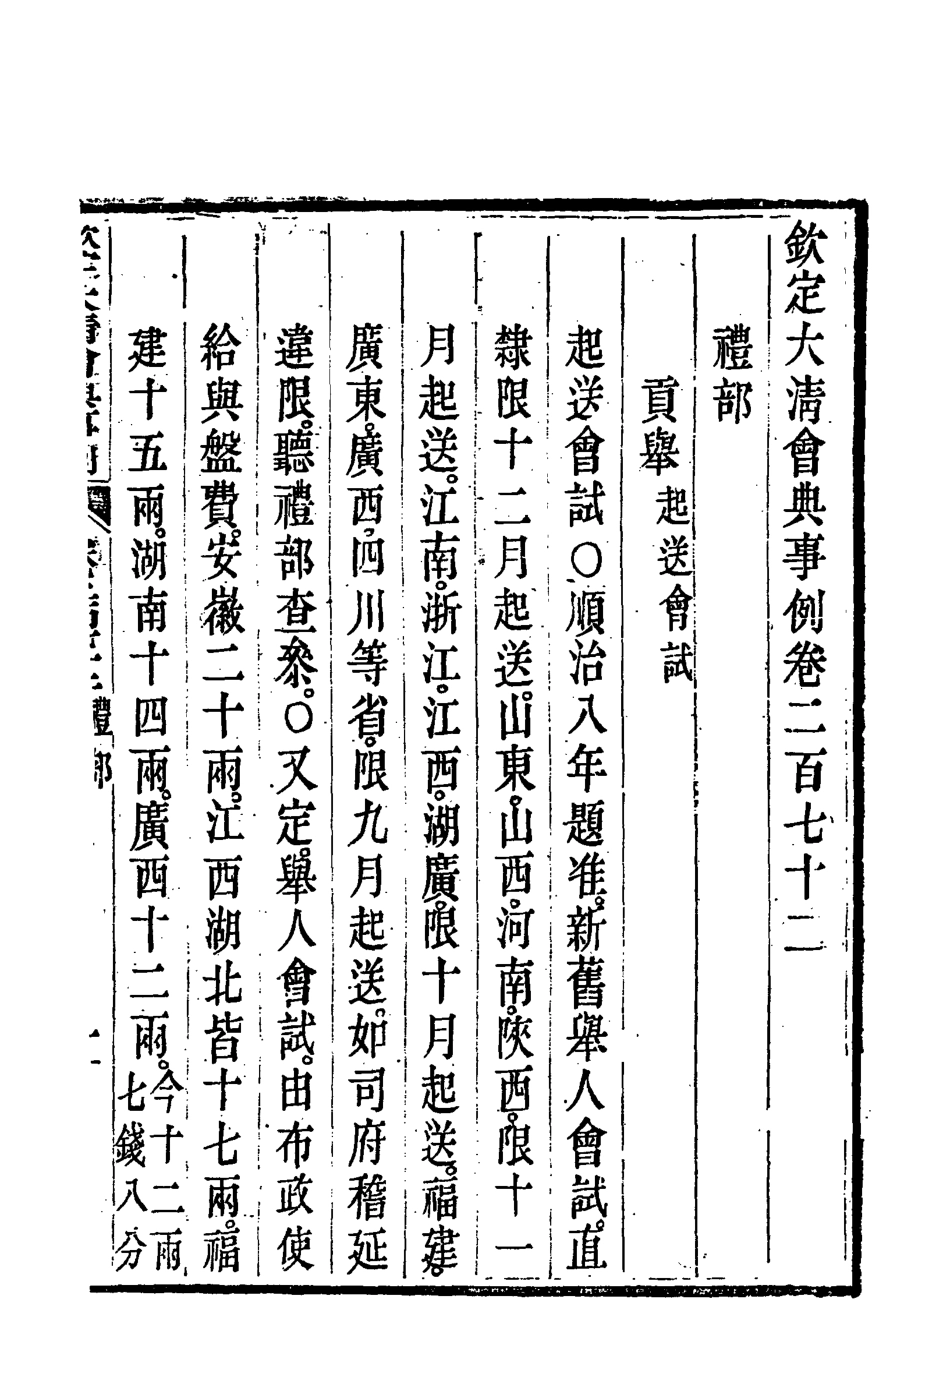 欽定大清會典事例卷二百七十二
禮部
貢舉 起送會試
起送會試○順治八年題准。新舊舉人會試。直
隸限十二月起送。山東。山西。河南。陝西。限十一
月起送。江南。浙江。江西。湖廣。限十月起送。福建。
廣東。廣西。四川等省。限九月起送。如司府稽延
違限。聽禮部查叅。○又定。舉人會試。由布政使
給與盤費。安徽二十兩。江西湖北皆十七兩。福
建十五兩。湖南十四兩。廣西十二兩。今十二兩
七錢八分
禮部